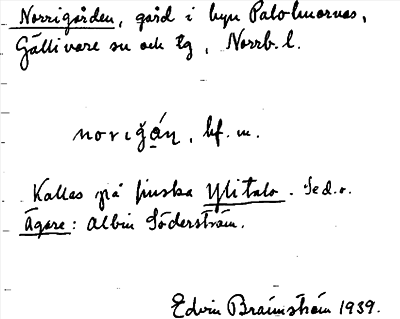 Norrigården, gård i byn Palohuornas,
Gällivare sn och tg, Norrb. l.
norigå̠ɳ, bf. m.
Kallas på finska Ylitalo. Se d. o.
Ägare: Albin Söderström.
Edvin Brännström 1939.